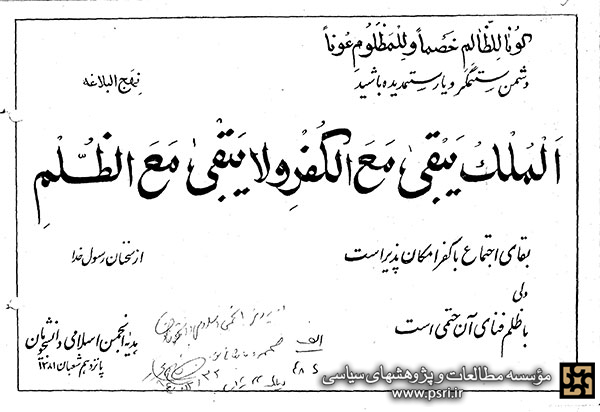 کونا للظالم خصما وللمظلوم عونا
دشمن ستمگر و یار ستمدیده باشید
نهج البلاغه
اَلْمُلْكُ يَبْقىٰ مَعَ الكُفْرِ وَلا يَبْقىٰ مَعَ الظُّلْمِ
بقای اجتماع با کفر امکان پذیر است
از سخنان رسول خدا
ولی
با ظلم فنای آن حتمی است
هدیه انجمن اسلامی دانشجویان
پانزدهم شعبان ۱۳۸۱
الف
مؤسسه مطالعات و پژوهشهای سیاسی
www.psri.ir